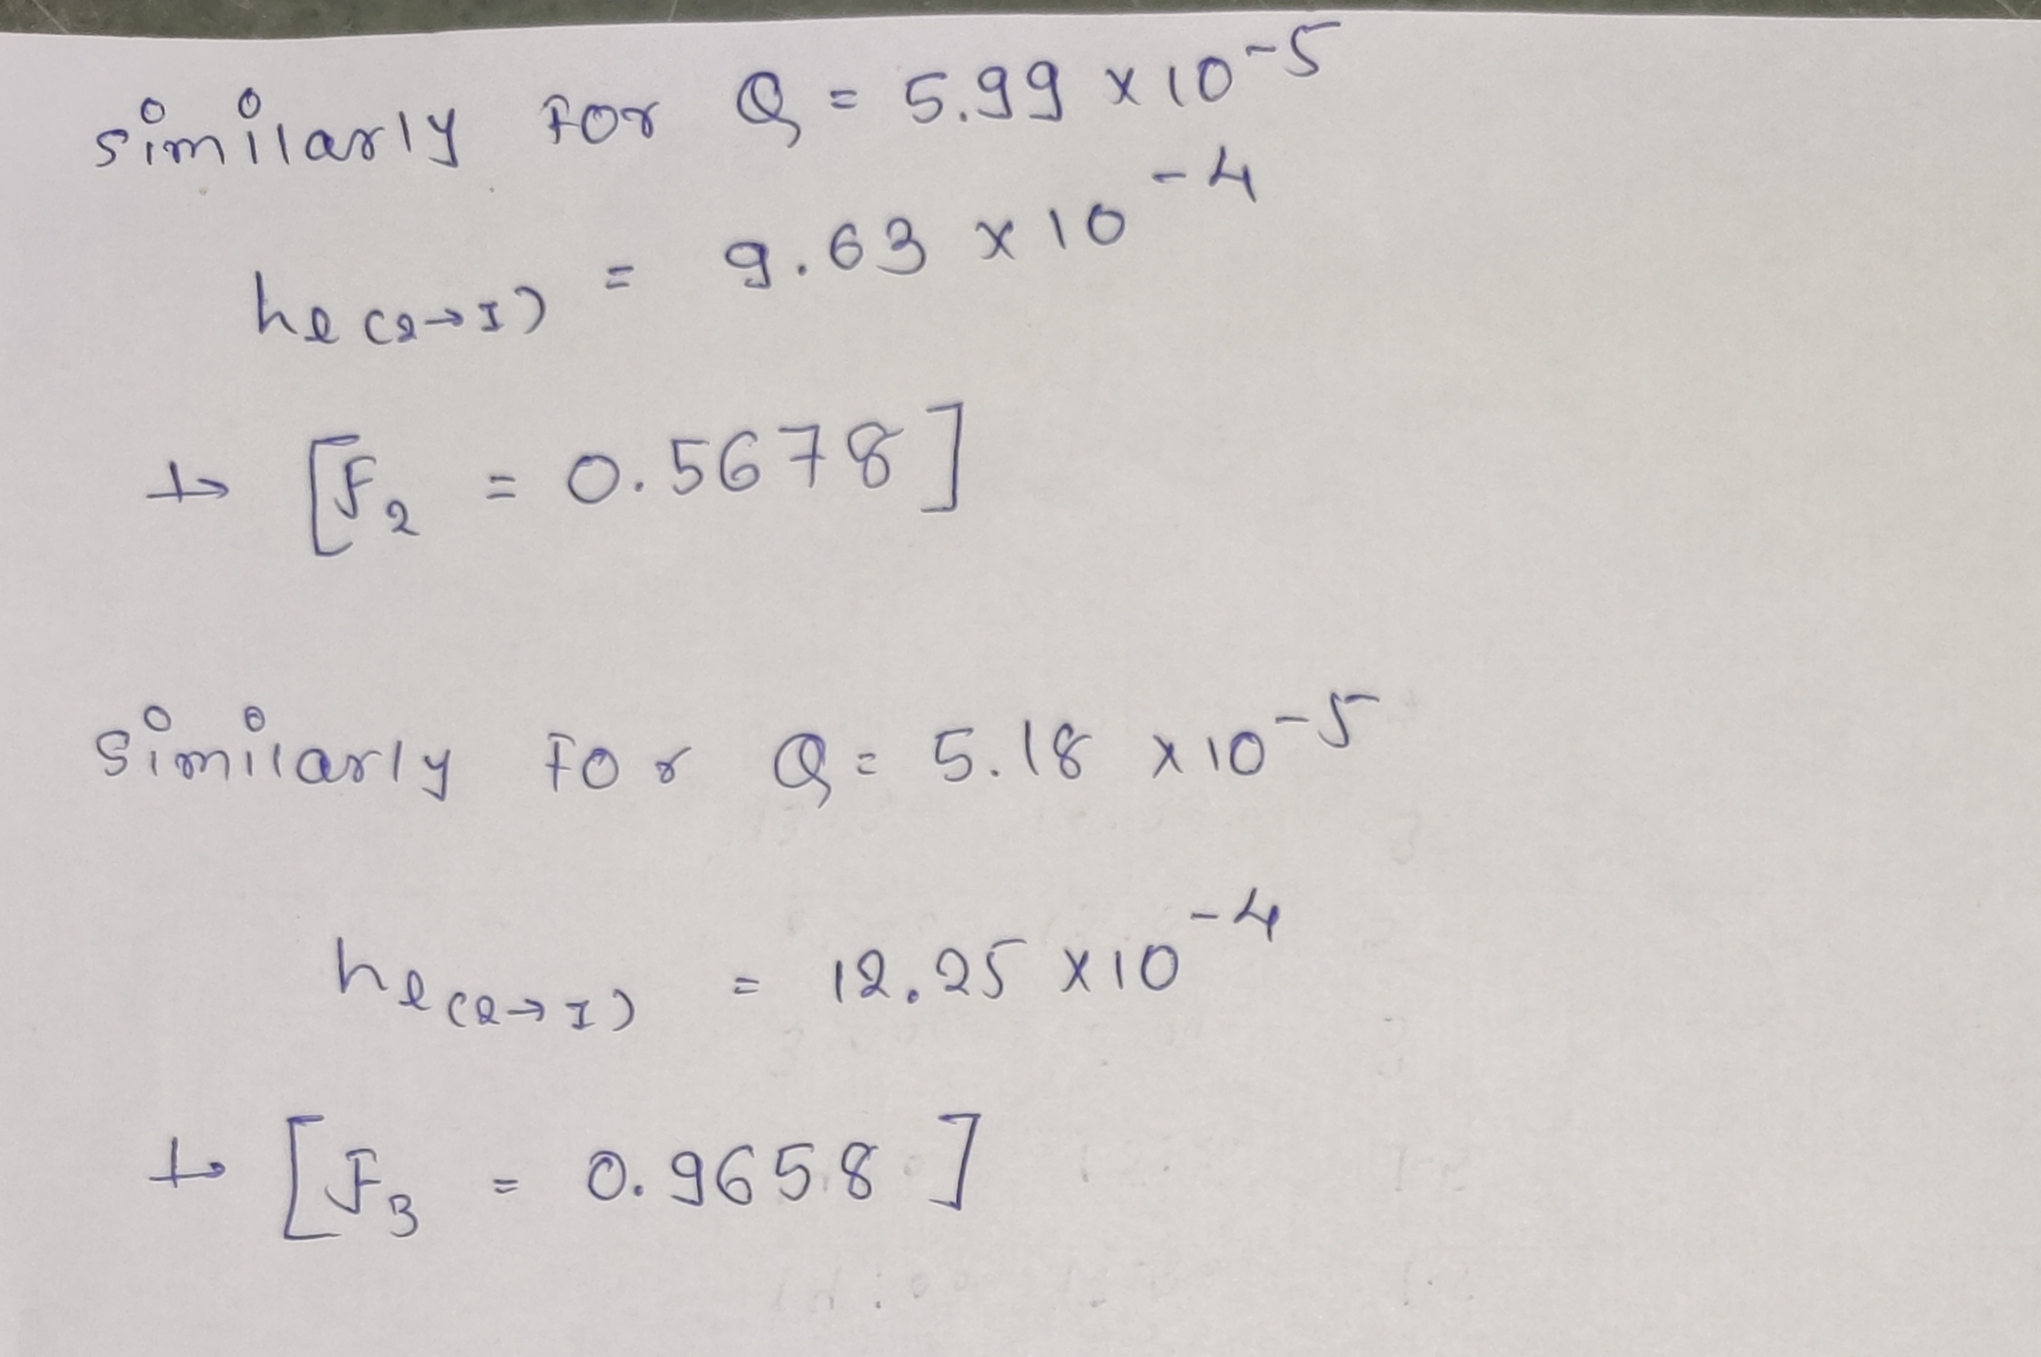 similarly for Q = 5.99 x 10⁻⁵
he (2→I) = 9.63 x 10⁻⁴
[F₂ = 0.5678]
similarly for Q = 5.18 x 10⁻⁵
he (2→I) = 12.25 x 10⁻⁴
[F₃ = 0.9658]